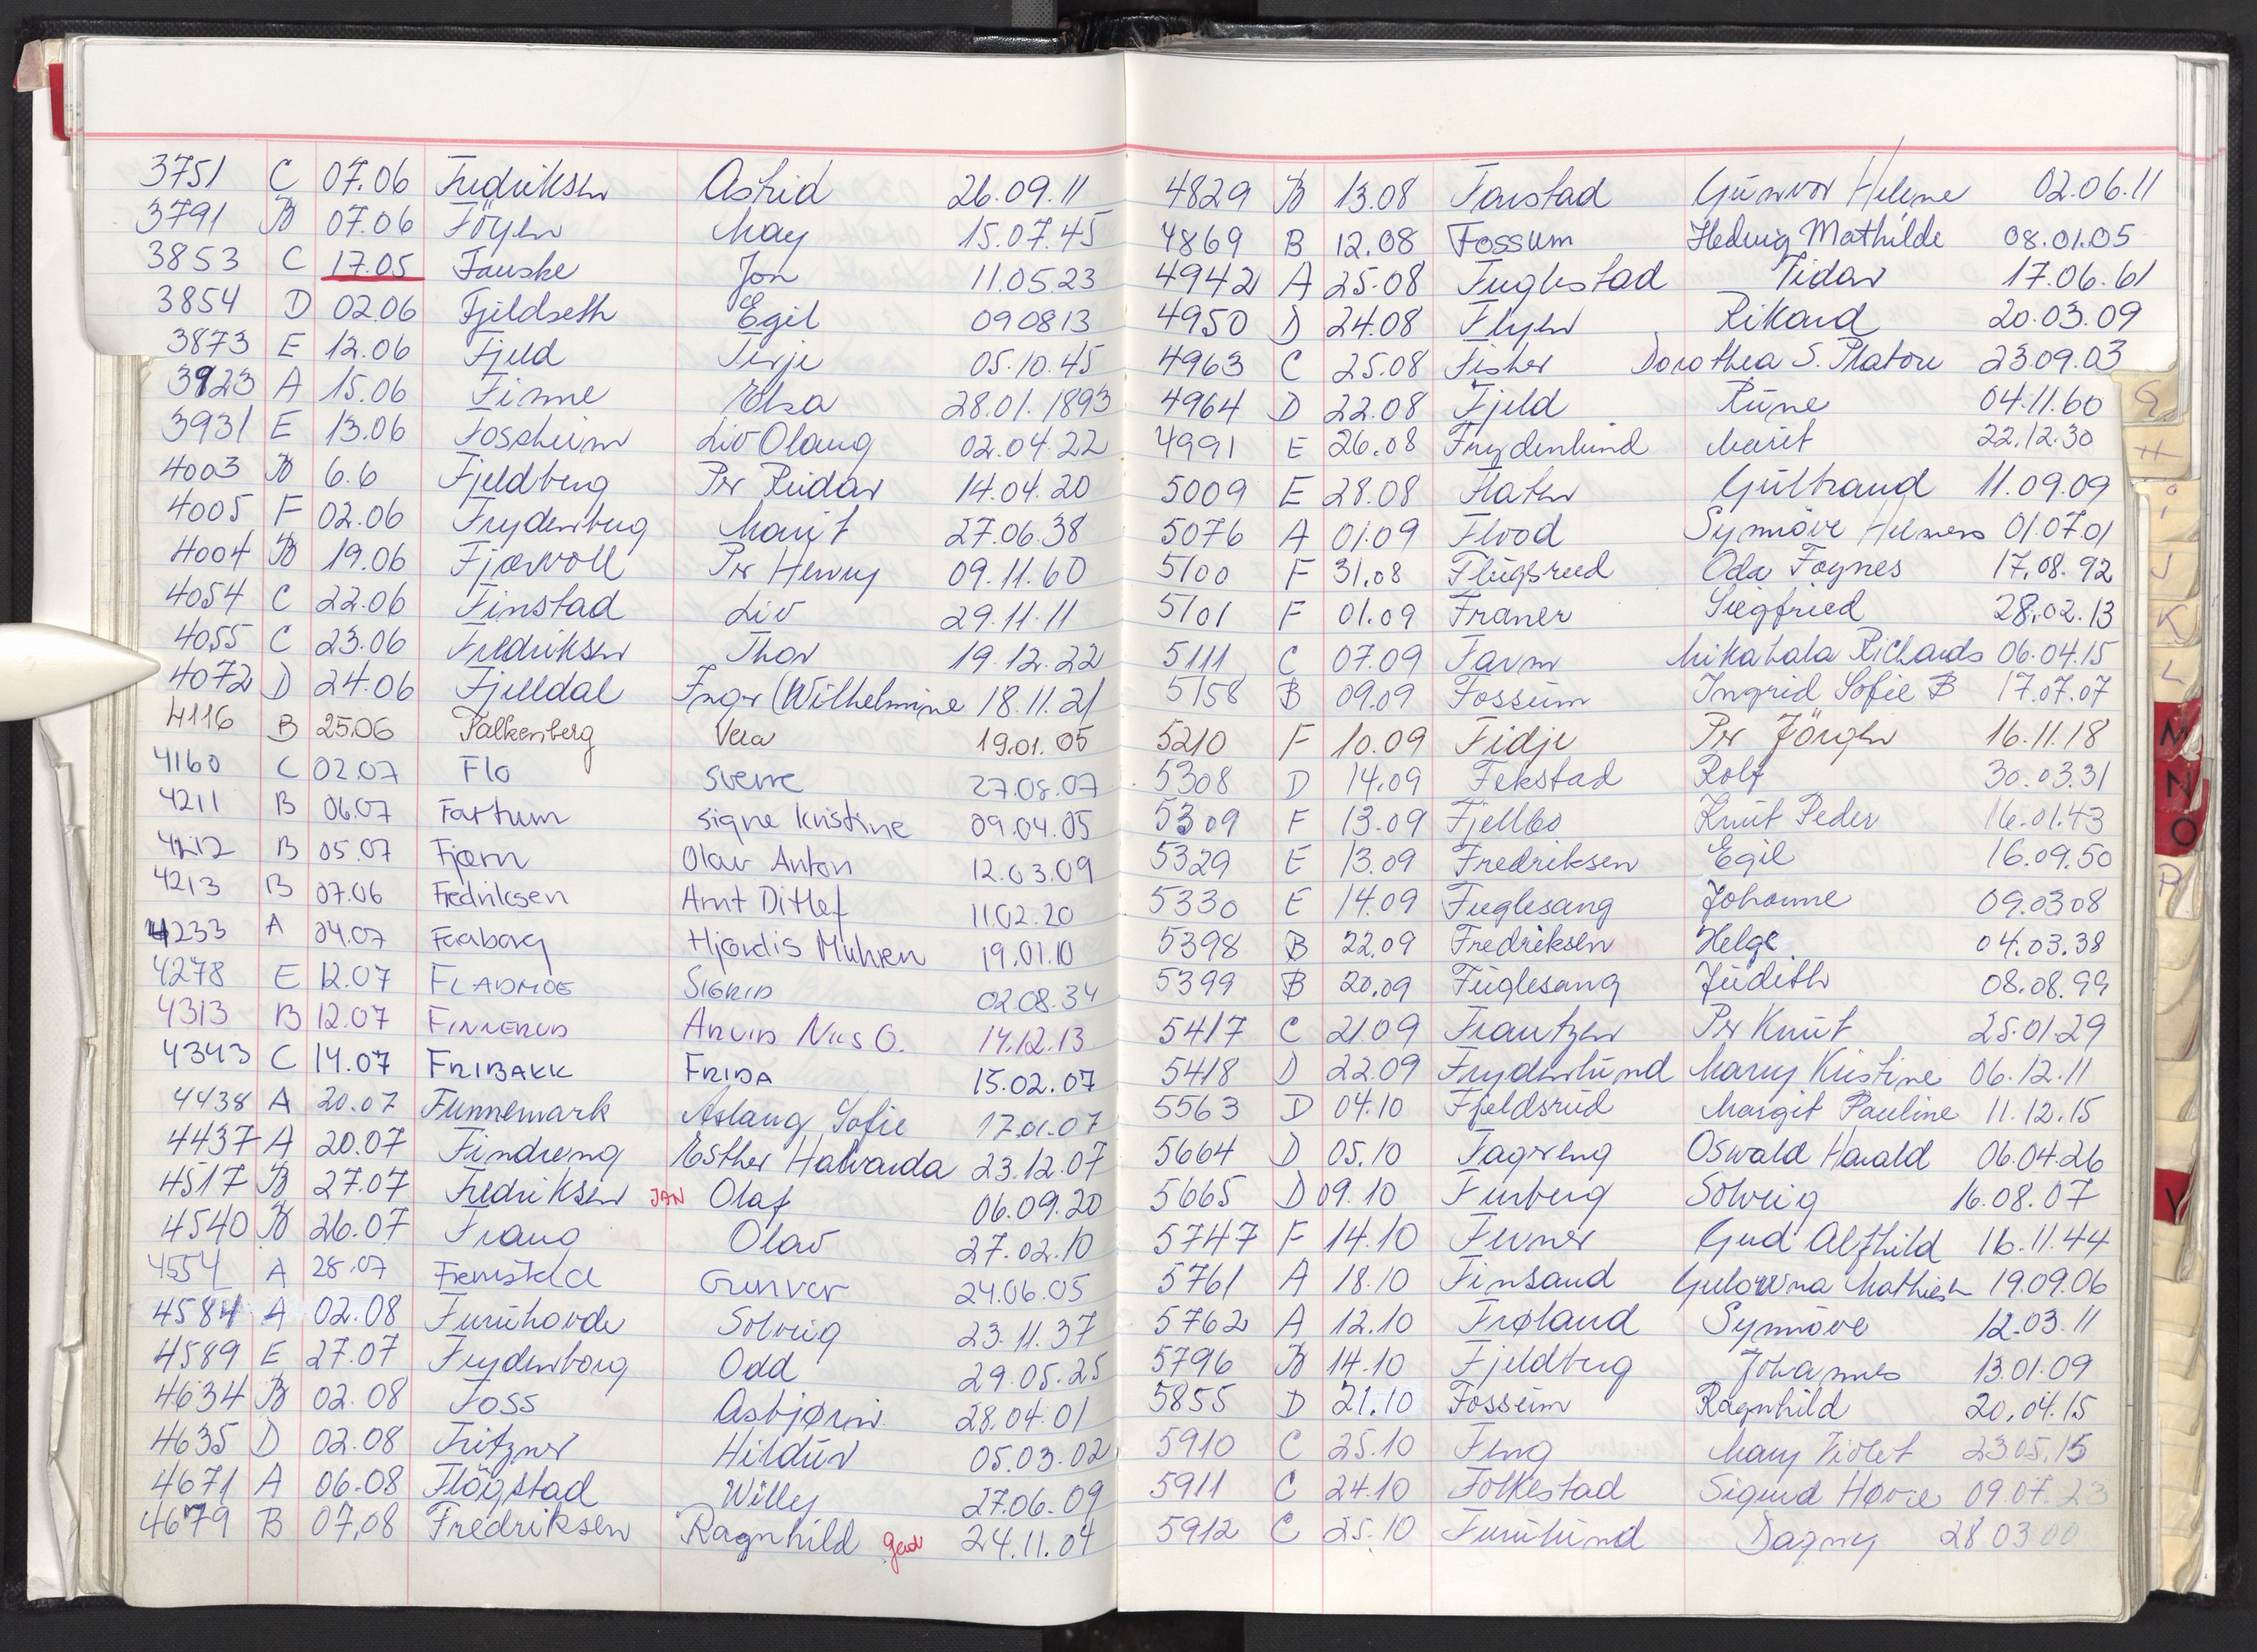 3751 C 07.06 Fredriksen Astrid 26.09.11
3791 B 07.06 Föyen May 15.07.45
3853 C 17.05 Fauske Jon 11.05.23
3854 D 02.06 Fjeldseth Egil 090813
3873 E 12.06 Fjeld Terje 05.10.45
3923 A 15.06 Finne Elsa 28.01.1893
3931 E 13.06 Fossheim Liv Olaug 02.04.22
4003 B 6.6 Fjeldberg Per Reidar 14.04.20
4005 F 02.06 Frydenberg Marit 27.06.38
4004 B 19.06 Fjærvoll Per Henry 09.11.60
4054 C 22.06 Finstad Liv 29.11.11
4055 C 23.06 Fredriksen Thor 19.12.22
4072 D 24.06 Fjelldal Inger (Wilhelmine 18.11.21
4116 B 25.06 Falkenberg Vera 19.01.05
4160 C 02.07 Flo Sverre 27.08.07
4211 B 06.07 Fartum Signe Kristine 09.04.05
4212 B 05.07 Fjørn Olav Anton 12.03.09
4213 B 07.06 Fredriksen Arnt Ditlef 11.02.20
4233 A 04.07 Faaborg Hjørdis 19.01.10
4278 E 12.07 FLADMOE SIGRID 02.08.34
4313 B 12.07 FINNERUD ARVID NILS O. 14.12.13
4343 C 14.07 FRIBAKK FRIDA 15.02.07
4438 A 20.07 Funnemark Aslaug Sofie 17.01.07
4437 A 20.07 Findreng Esther Halvarda 23.12.07
4517 B 27.07 Fredriksen JAN Olaf 06.09.20
4540 B 26.07 Frang Olav 27.02.10
4554 A 28.07 Fremstad Gunvor 24.06.05
4584 A 02.08 Furuhovde Solveig 23.11.37
4589 E 27.07 Frydenborg Odd 29.05.25
4634 B 02.08 Foss Asbjørn 28.04.01
4635 D 02.08 Fritzner Hildur 05.03.02
4671 A 06.08 Flögstad Willy 27.06.09
4679 B 07.08 Fredriksen Ragnhild Gerd 24.11.04
4829 B 13.08 Farstad Gunvor Helene 02.06.11
4869 B 12.08 Fossum Hedvig Mathilde 08.01.05
4942 A 25.08 Fuglestad Vidar 17.06.61
4950 D 24.08 Flyen Rikard 20.03.09
4963 C 25.08 Fisher Dorothea S. Platou 23.09.03
4964 D 22.08 Fjeld Rune 04.11.60
4991 E 26.08 Frydenlund Marit 22.12.30
5009 E 28.08 Flaten Gulbrand 11.09.09
5076 A 01.09 Flood Synnöve Helmers 01.07.01
5100 F 31.08 Flugsrud Oda Fognes 17.08.92
5101 F 01.09 Franer Siegfried 28.02.13
5111 C 07.09 Favm Mikahala Richards 06.04.15
5158 B 09.09 Fossum Ingrid Sofie B 17.07.07
5210 F 10.09 Fidje Per Jörgen 16.11.18
5308 D 14.09 Fekstad Rolf 30.03.31
5309 F 13.09 Fjellbo Knut Peder 16.01.43
5329 E 13.09 Fredriksen Egil 16.09.50
5330 E 14.09 Fuglesang Johanne 09.0308
5398 B 22.09 Fredriksen Helge 04.03.38
5399 B 20.09 Fuglesang Judith 08.08.99
5417 C 21.09 Frantzen Per Knut 25.01.29
5418 D 22.09 Frydenlund Mary Kristine 06.12.11
5563 D 04.10 Fjeldsrud Margit Pauline 11.12.15
5664 D 05.10 Fagreng Oswald Harald 06.04.26
5665 D 09.10 Furberg Solveig 16.08.07
5747 F 14.10 Gud Alfhild 16.11.44
5761 A 18.10 Finsand Gulowina Mathiesen 19.09.06
5762 A 12.10 Frøland Synnöve 12.03.11
5796 B 14.10 Fjeldberg Johannes 13.01.09
5855 D 21.10 Fossum Ragnhild 20.04.15
5910 C 25.10 Feng Mary Violet 23.05.15
5911 C 24.10 Folkestad Sigurd 09.07.23
5912 C 25.10 Furulund Dagny 28.03.00
G
H
I
J
K
L
M
N
O
P
V